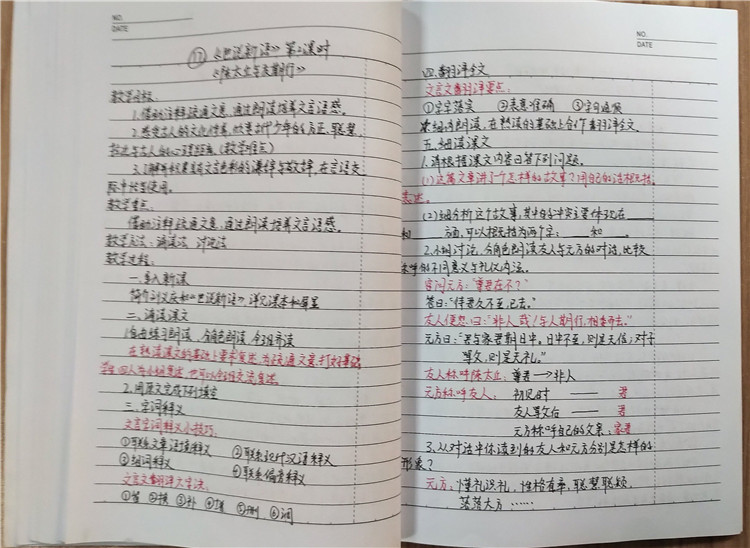 NO.
DATE
⑰《世说新语》第2课时
《陈太丘与友期行》
教学目标:
1.借助注释疏通文意,通过朗读培养文言语感。
2.感受古人的文化情趣,欣赏古代少年的方正、聪慧,
拉近与古人的心理距离(教学难点)
3.了解并积累富有文言色彩的谦辞与敬辞,在言语交
际中学会使用。
教学重点:
借助注释疏通文意,通过朗读培养文言语感。
教学方法:诵读法 讨论法
教学过程:
一.导入新课
简介刘义庆和《世说新语》,详见课本和屏显
二.诵读课文
1.自由练习朗读,分角色朗读,全班齐读
在熟读课文的基础上要求复述,为疏通文意打好基础
四人为小组复述,也可以全班交流复述。
2.用原文完成下列填空
三.字词释义
文言字词释义小技巧:
①联系文章语境释义 ②联系现代汉语释义
③组词释义 ④联系偏旁释义
文言文翻译六字决:
①留 ②换 ③补 ④ ⑤删 ⑥调
NO.
DATE
四.翻译全文
文言文翻译要点:
①字字落实 ②表意准确 ③字句通顺
细功朗读,在熟读的基础上合作翻译全文
五.细读课文
1.请根据课文内容回答下列问题。
(1)这篇文章讲了个怎样的故事?用自己的话概括
表述。
(2)细分析这个故事,其中的冲突主要体现在____
和____方面,可以概括为两个字:____和____。
2.小组讨论,分角色朗读友人与元方的对话,比较
称呼的不同意义与礼仪内涵。
客问元方:“尊君在不?”
答曰:“待君久不至,已去。”
友人便怒:曰:“非人哉!与人期行,相委而去。”
元方曰:“君与家君期日中。日中不至,则是无信;对子
骂父,则是无礼。”
友人称呼陈太丘:尊君→非人
元方称呼友人: 初见时 —— 君
友人骂父后 —— 君
元方称呼自己的父亲:家君
3.从对话中你读到的友人和元方分别是怎样的
形象?
元方:懂礼识礼,性格直率,聪慧聪颖,
落落大方……